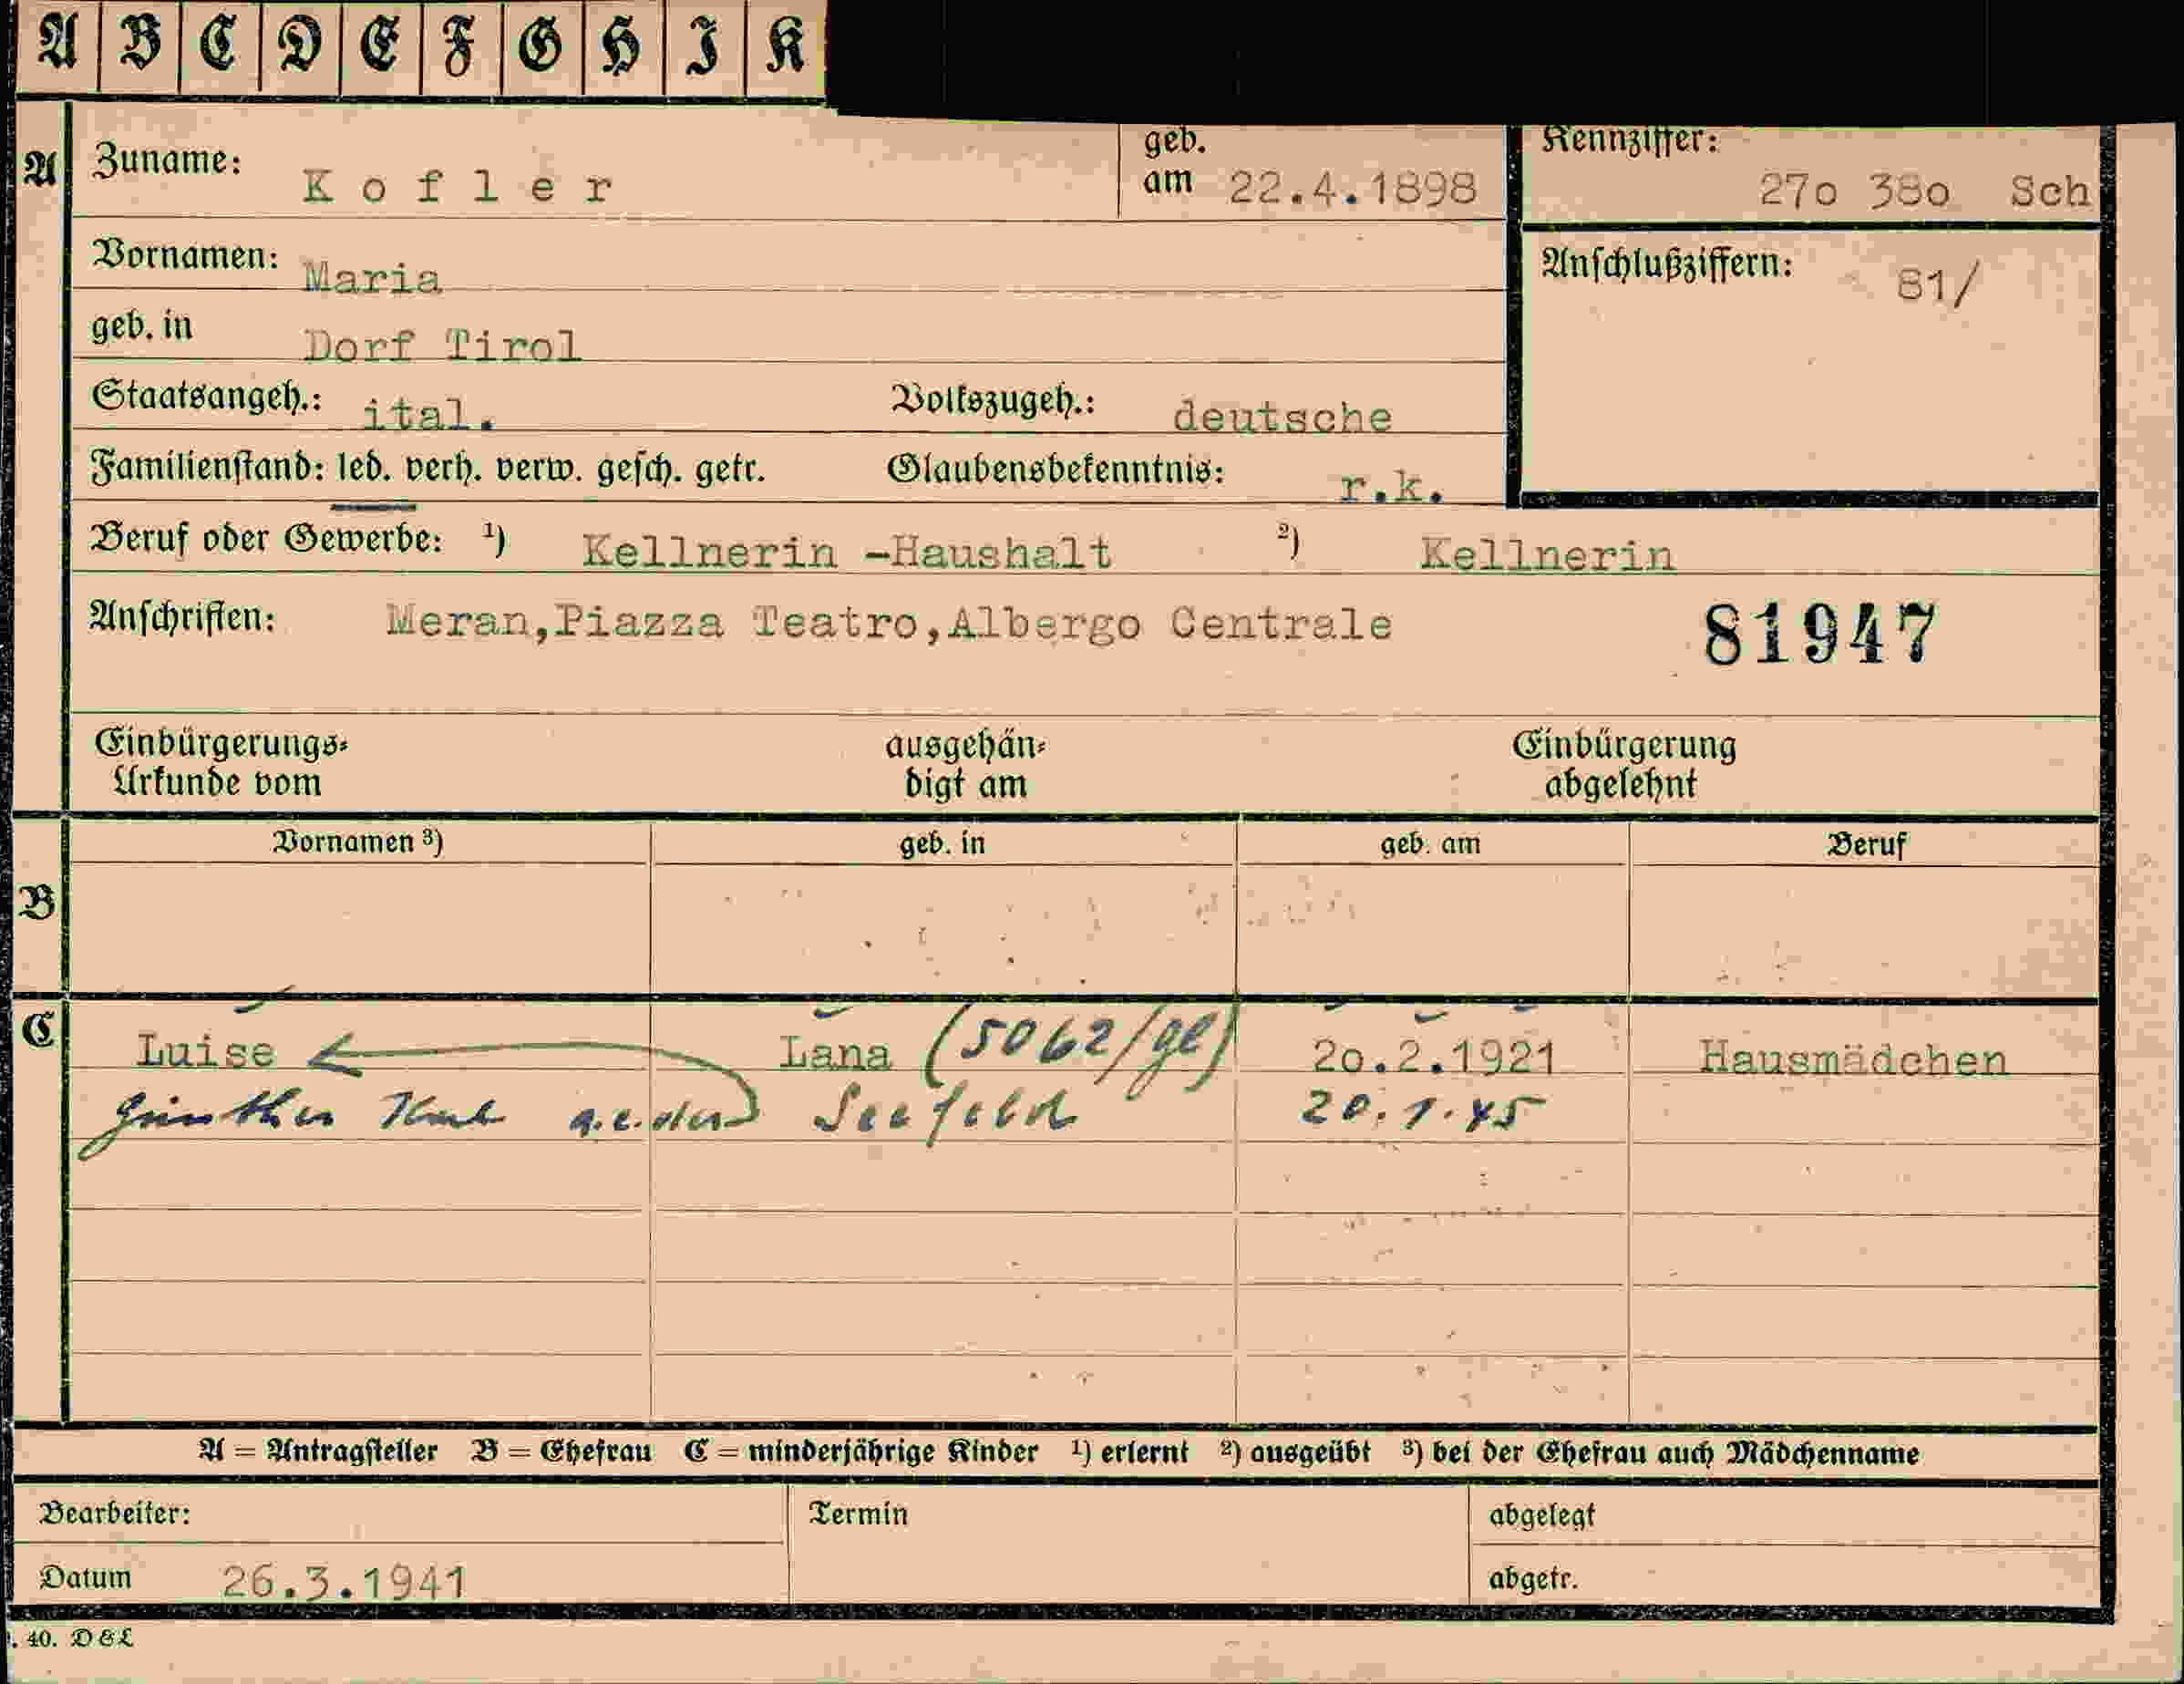 A B C D E F G H I K
A Zuname: Kofler geb. am 22.4.1898 Kennziffer: 27o 38o Sch
Vornamen: Maria Anschlußziffern: 81/
geb. in Dorf Tirol
Staatsangeh.: ital. Volkszugeh.: deutsche
Familienstand: led. verh. verw. gesch. getr. Glaubensbekenntnis: r.k.
Beruf oder Gewerbe: 1) Kellnerin -Haushalt 2) Kellnerin
Anschriften: Meran,Piazza Teatro,Albergo Centrale 81947
Einbürgerungs- ausgehän- Einbürgerung
Urkunde vom digt am abgelehnt
Vornamen 3) geb. in geb. am Beruf
B
C Luise Lana (5062/gl) 2o.2.1921 Hausmädchen
Günther a.e. der Seefeld 20.1.45
A = Antragsteller B = Ehefrau C = minderjährige Kinder 1) erlernt 2) ausgeübt 3) bei der Ehefrau auch Mädchenname
Bearbeiter: Termin abgelegt
Datum 26.3.1941 abgetr.
. 40. D & L